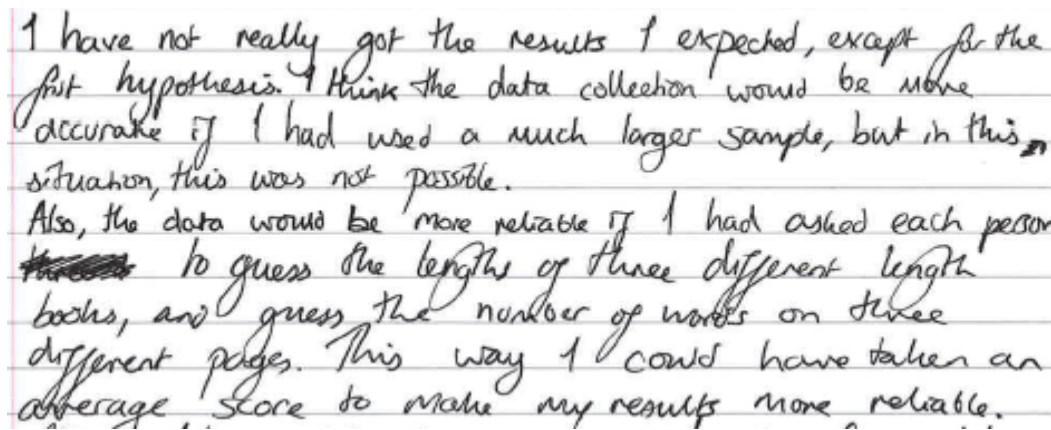 I have not really got the results I expected, except for the
first hypothesis. I think the data collection would be more
accurate if I had used a much larger sample, but in this
situation, this was not possible.
Also, the data would be more reliable if I had asked each person
to guess the lengths of three different length
books, and guess the number of words on three
different pages. This way I could have taken an
average score to make my results more reliable.